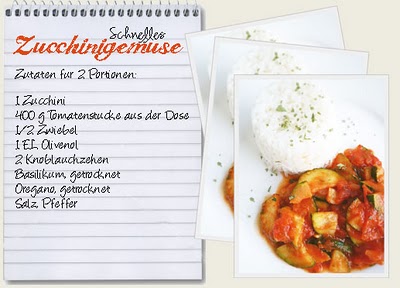 Schnelles
Zucchinigemuse
Zutaten fur 2 Portionen:
1 Zucchini
400 g Tomatenstucke aus der Dose
1/2 Zwiebel
1 EL Olivenol
2 Knoblauchzehen
Basilikum, getrocknet
Oregano, getrocknet
Salz, Pfeffer